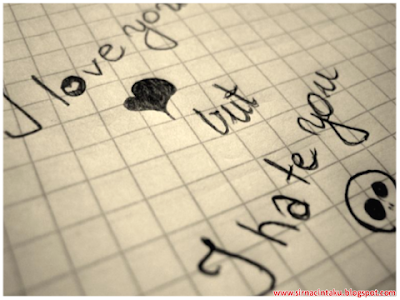 I love you
but
I hate you
www.sirnacintaku.blogspot.com